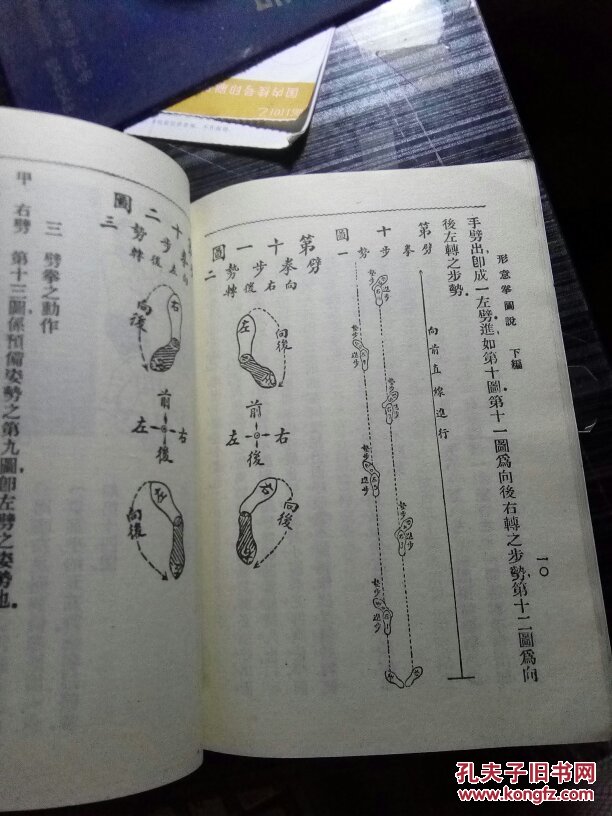 形意拳圖說 下編
一〇
手劈出,即成一左劈進,如第十圖,第十一圖爲向後右轉之步勢,第十二圖爲向
後左轉之步勢。
向前直線進行
第劈
十拳
步
圖勢
一
墊步
進步
墊步
進步
墊步
進步
墊步
進步
墊步
進步
第十一圖
劈拳步勢二
向右後轉
左
向後
前
左
右
後
右
向後
十二圖
步勢三
左後轉
右
向後
前
左
右
後
左
向後
三 劈拳之動作
甲 右劈 第十三圖係預備姿勢之第九圖,即左劈之姿勢也。
国内挂号印刷
孔夫子旧书网
www.kongfz.com